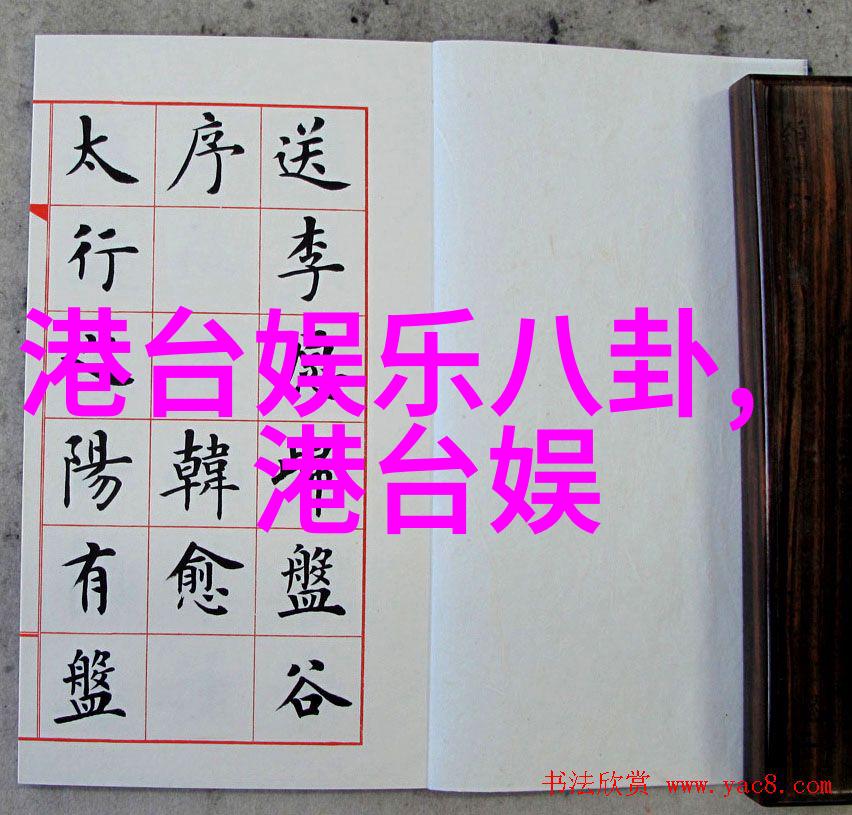 送李盤谷
序韓愈
太行陽有盤
港台娱乐八卦,
港台娱
书法欣赏 www.yac8.com